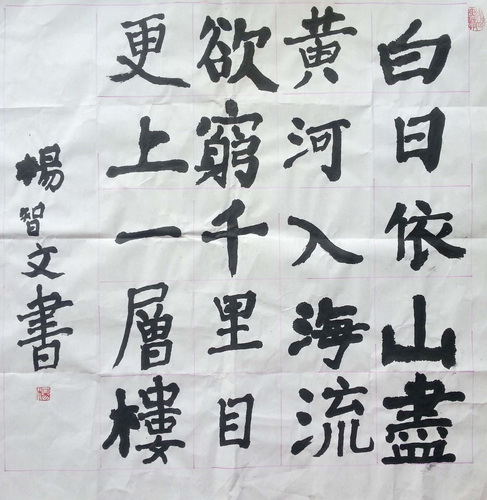 白日依山盡
黃河入海流
欲窮千里目
更上一層樓
楊智文書